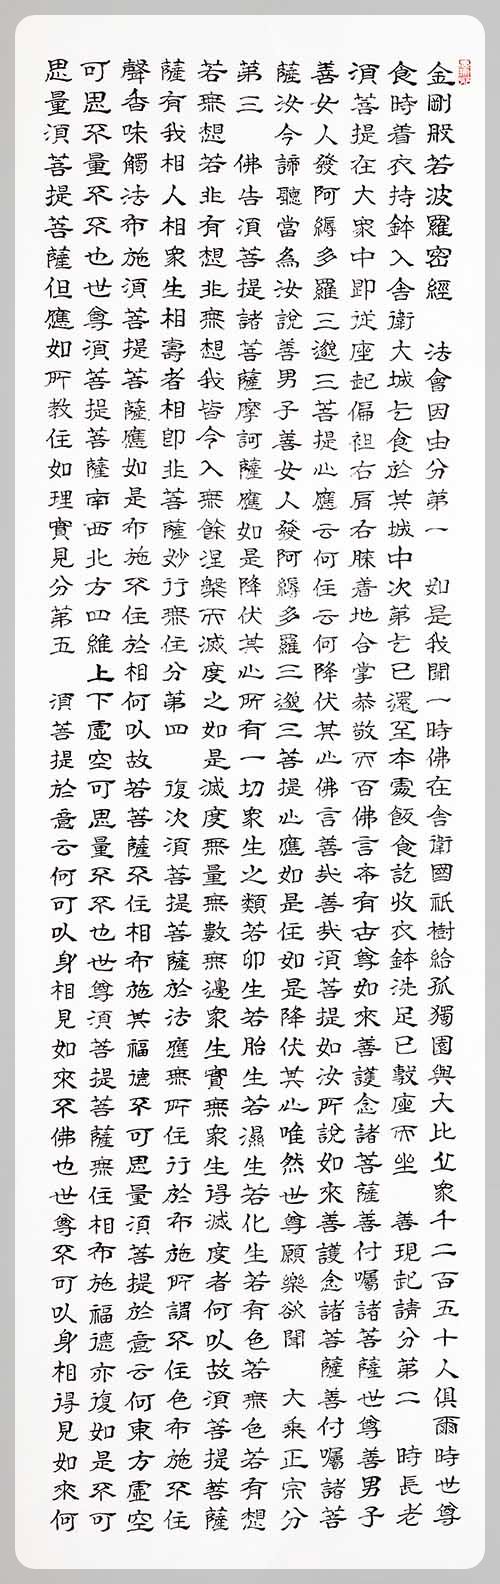 金剛般若波羅密經　法會因由分第一　如是我聞一時佛在舍衛國祇樹給孤獨園與大比丘衆千二百五十人俱爾時世尊
食時着衣持鉢入舍衛大城乞食於其城中次第乞已還至本處飯食訖收衣鉢洗足已敷座而坐　善現起請分第二　時長老
湏菩提在大衆中即從座起偏袒右肩右膝着地合掌恭敬而百佛言希有古尊如來善護念諸菩薩善付囑諸菩薩世尊善男子
善女人發阿縟多羅三邈三菩提心應云何住云何降伏其心佛言善哉善哉湏菩提如汝所說如來善護念諸菩薩善付囑諸菩
薩汝今諦聽當為汝說善男子善女人發阿縟多羅三邈三菩提心應如是住如是降伏其心唯然世尊願樂欲聞　大乘正宗分
第三　佛告湏菩提諸菩薩摩訶薩應如是降伏其心所有一切衆生之類若卵生若胎生若濕生若化生若有色若無色若有想
若無想若非有想非無想我皆令入無餘涅槃而滅度之如是滅度無量無數無邊衆生實無衆生得滅度者何以故湏菩提菩薩
薩有我相人相衆生相壽者相即非菩薩妙行無住分第四　復次湏菩提菩薩於法應無所住行於布施所謂不住色布施不住
聲香味觸法布施湏菩提菩薩應如是布施不住於相何以故若菩薩不住相布施其福德不可思量湏菩提於意云何東方虛空
可思不量不不也世尊湏菩提菩薩南西北方四維上下虛空可思量不不也世尊湏菩提菩薩無住相布施福德亦復如是不可
思量湏菩提菩薩但應如所教住如理實見分第五　湏菩提於意云何可以身相見如來不佛也世尊不可以身相得見如來何